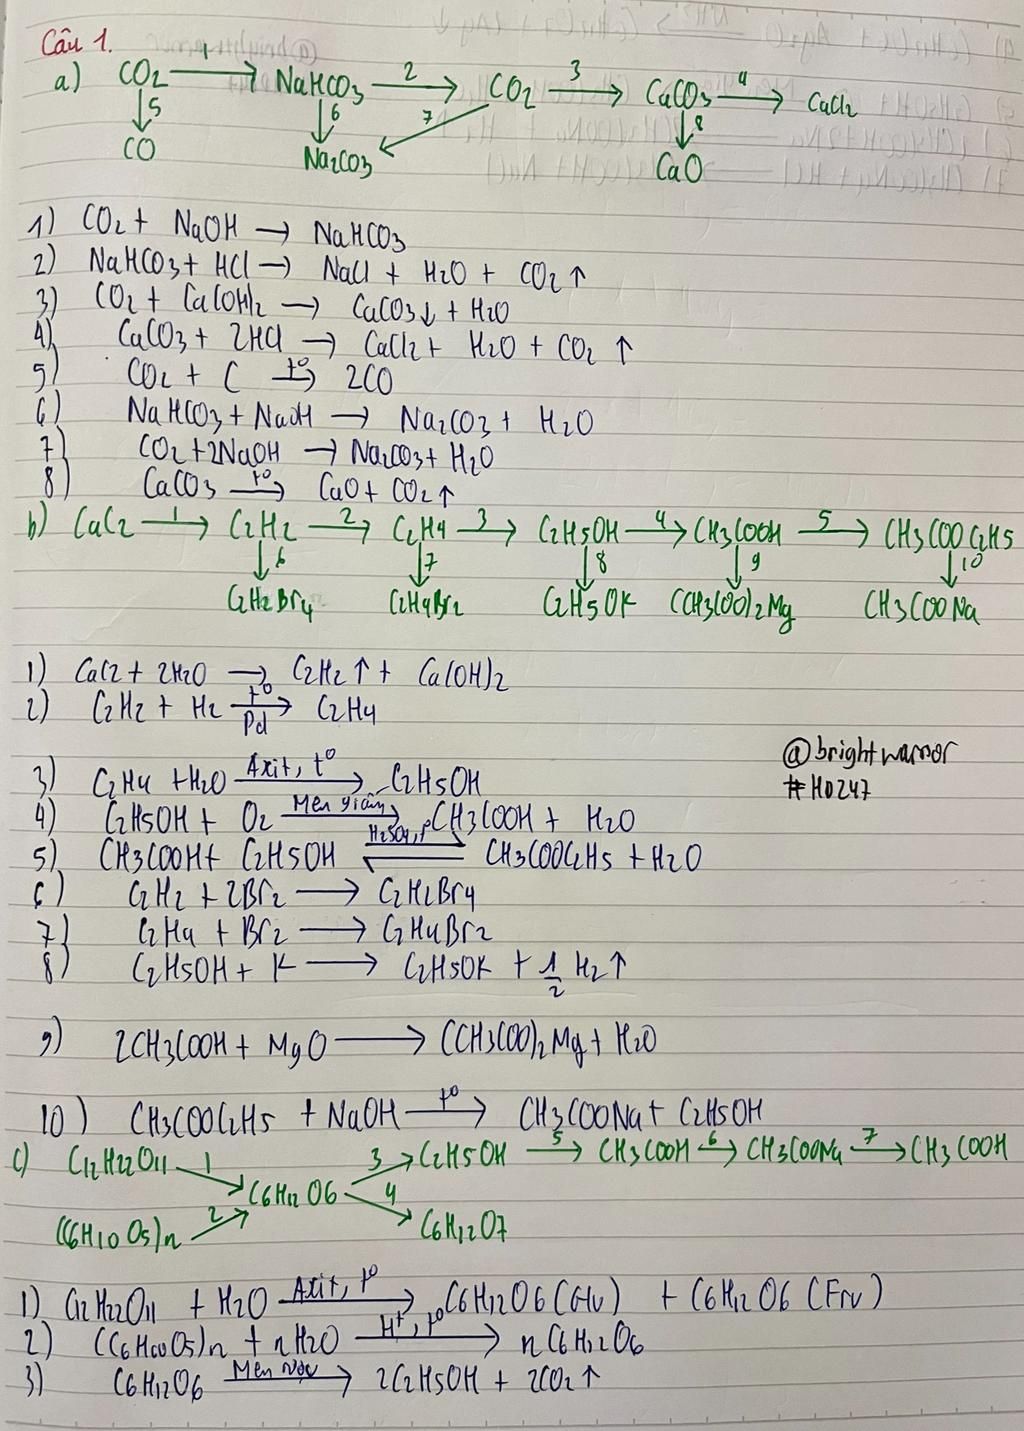 Câu 1.
a) CO2 —1→ NaHCO3 —2→ CO2 —3→ CaCO3 —4→ CaCl2
↓5 ↓6 7 ↓8
CO Na2CO3 CaO
1) CO2 + NaOH → NaHCO3
2) NaHCO3 + HCl → NaCl + H2O + CO2 ↑
3) CO2 + Ca(OH)2 → CaCO3↓ + H2O
4) CaCO3 + 2HCl → CaCl2 + H2O + CO2 ↑
5) CO2 + C —t°→ 2CO
6) NaHCO3 + NaOH → Na2CO3 + H2O
7) CO2 + 2NaOH → Na2CO3 + H2O
8) CaCO3 —t°→ CaO + CO2 ↑
b) CaC2 —1→ C2H2 —2→ C2H4 —3→ C2H5OH —4→ CH3COOH —5→ CH3COOC2H5
↓6 ↓7 ↓8 ↓9 ↓10
C2H2Br4 C2H4Br2 C2H5OK (CH3COO)2Mg CH3COONa
1) CaC2 + 2H2O → C2H2 ↑ + Ca(OH)2
2) C2H2 + H2 —t°, Pd→ C2H4
@brightwarror
#HD247
3) C2H4 + H2O —Axit, t°→ C2H5OH
4) C2H5OH + O2 —Men giấm→ CH3COOH + H2O
5) CH3COOH + C2H5OH —H2SO4, t°⇌ CH3COOC2H5 + H2O
6) C2H2 + 2Br2 → C2H2Br4
7) C2H4 + Br2 → C2H4Br2
8) C2H5OH + K → C2H5OK + 1/2 H2↑
9) 2CH3COOH + MgO → (CH3COO)2Mg + H2O
10) CH3COOC2H5 + NaOH —t°→ CH3COONa + C2H5OH
c) C12H22O11 1 3 C2H5OH —5→ CH3COOH —6→ CH3COONa —7→ CH3COOH
C6H12O6
(C6H10O5)n 2 4 C6H12O7
1) C12H22O11 + H2O —Axit, t°→ C6H12O6 (Glu) + C6H12O6 (Fru)
2) (C6H10O5)n + nH2O —H+, t°→ nC6H12O6
3) C6H12O6 —Men rượu→ 2C2H5OH + 2CO2↑